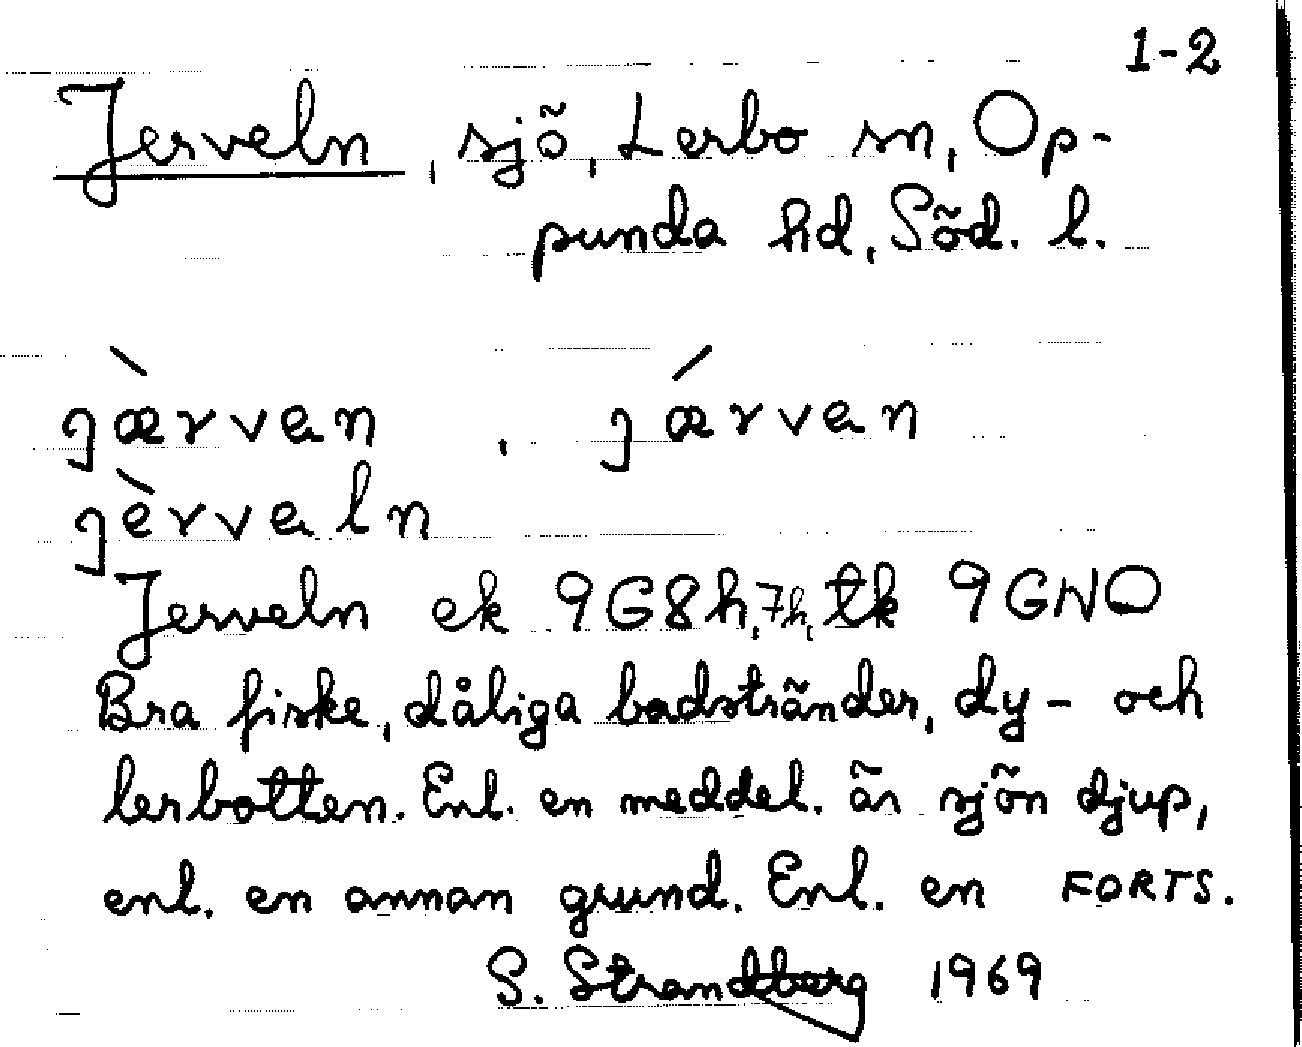 1-2
Jerveln, sjö, Lerbo sn, Op-
punda hd, Söd. l.
jæ̀rvan, jǽrvan
jèrvaln
Jerveln ek 9G8h, 7h, tk 9GNO
Bra fiske, dåliga badstränder, dy- och
lerbotten. Enl. en meddel. är sjön djup,
enl. en annan grund. Enl. en FORTS.
S. Strandberg 1969